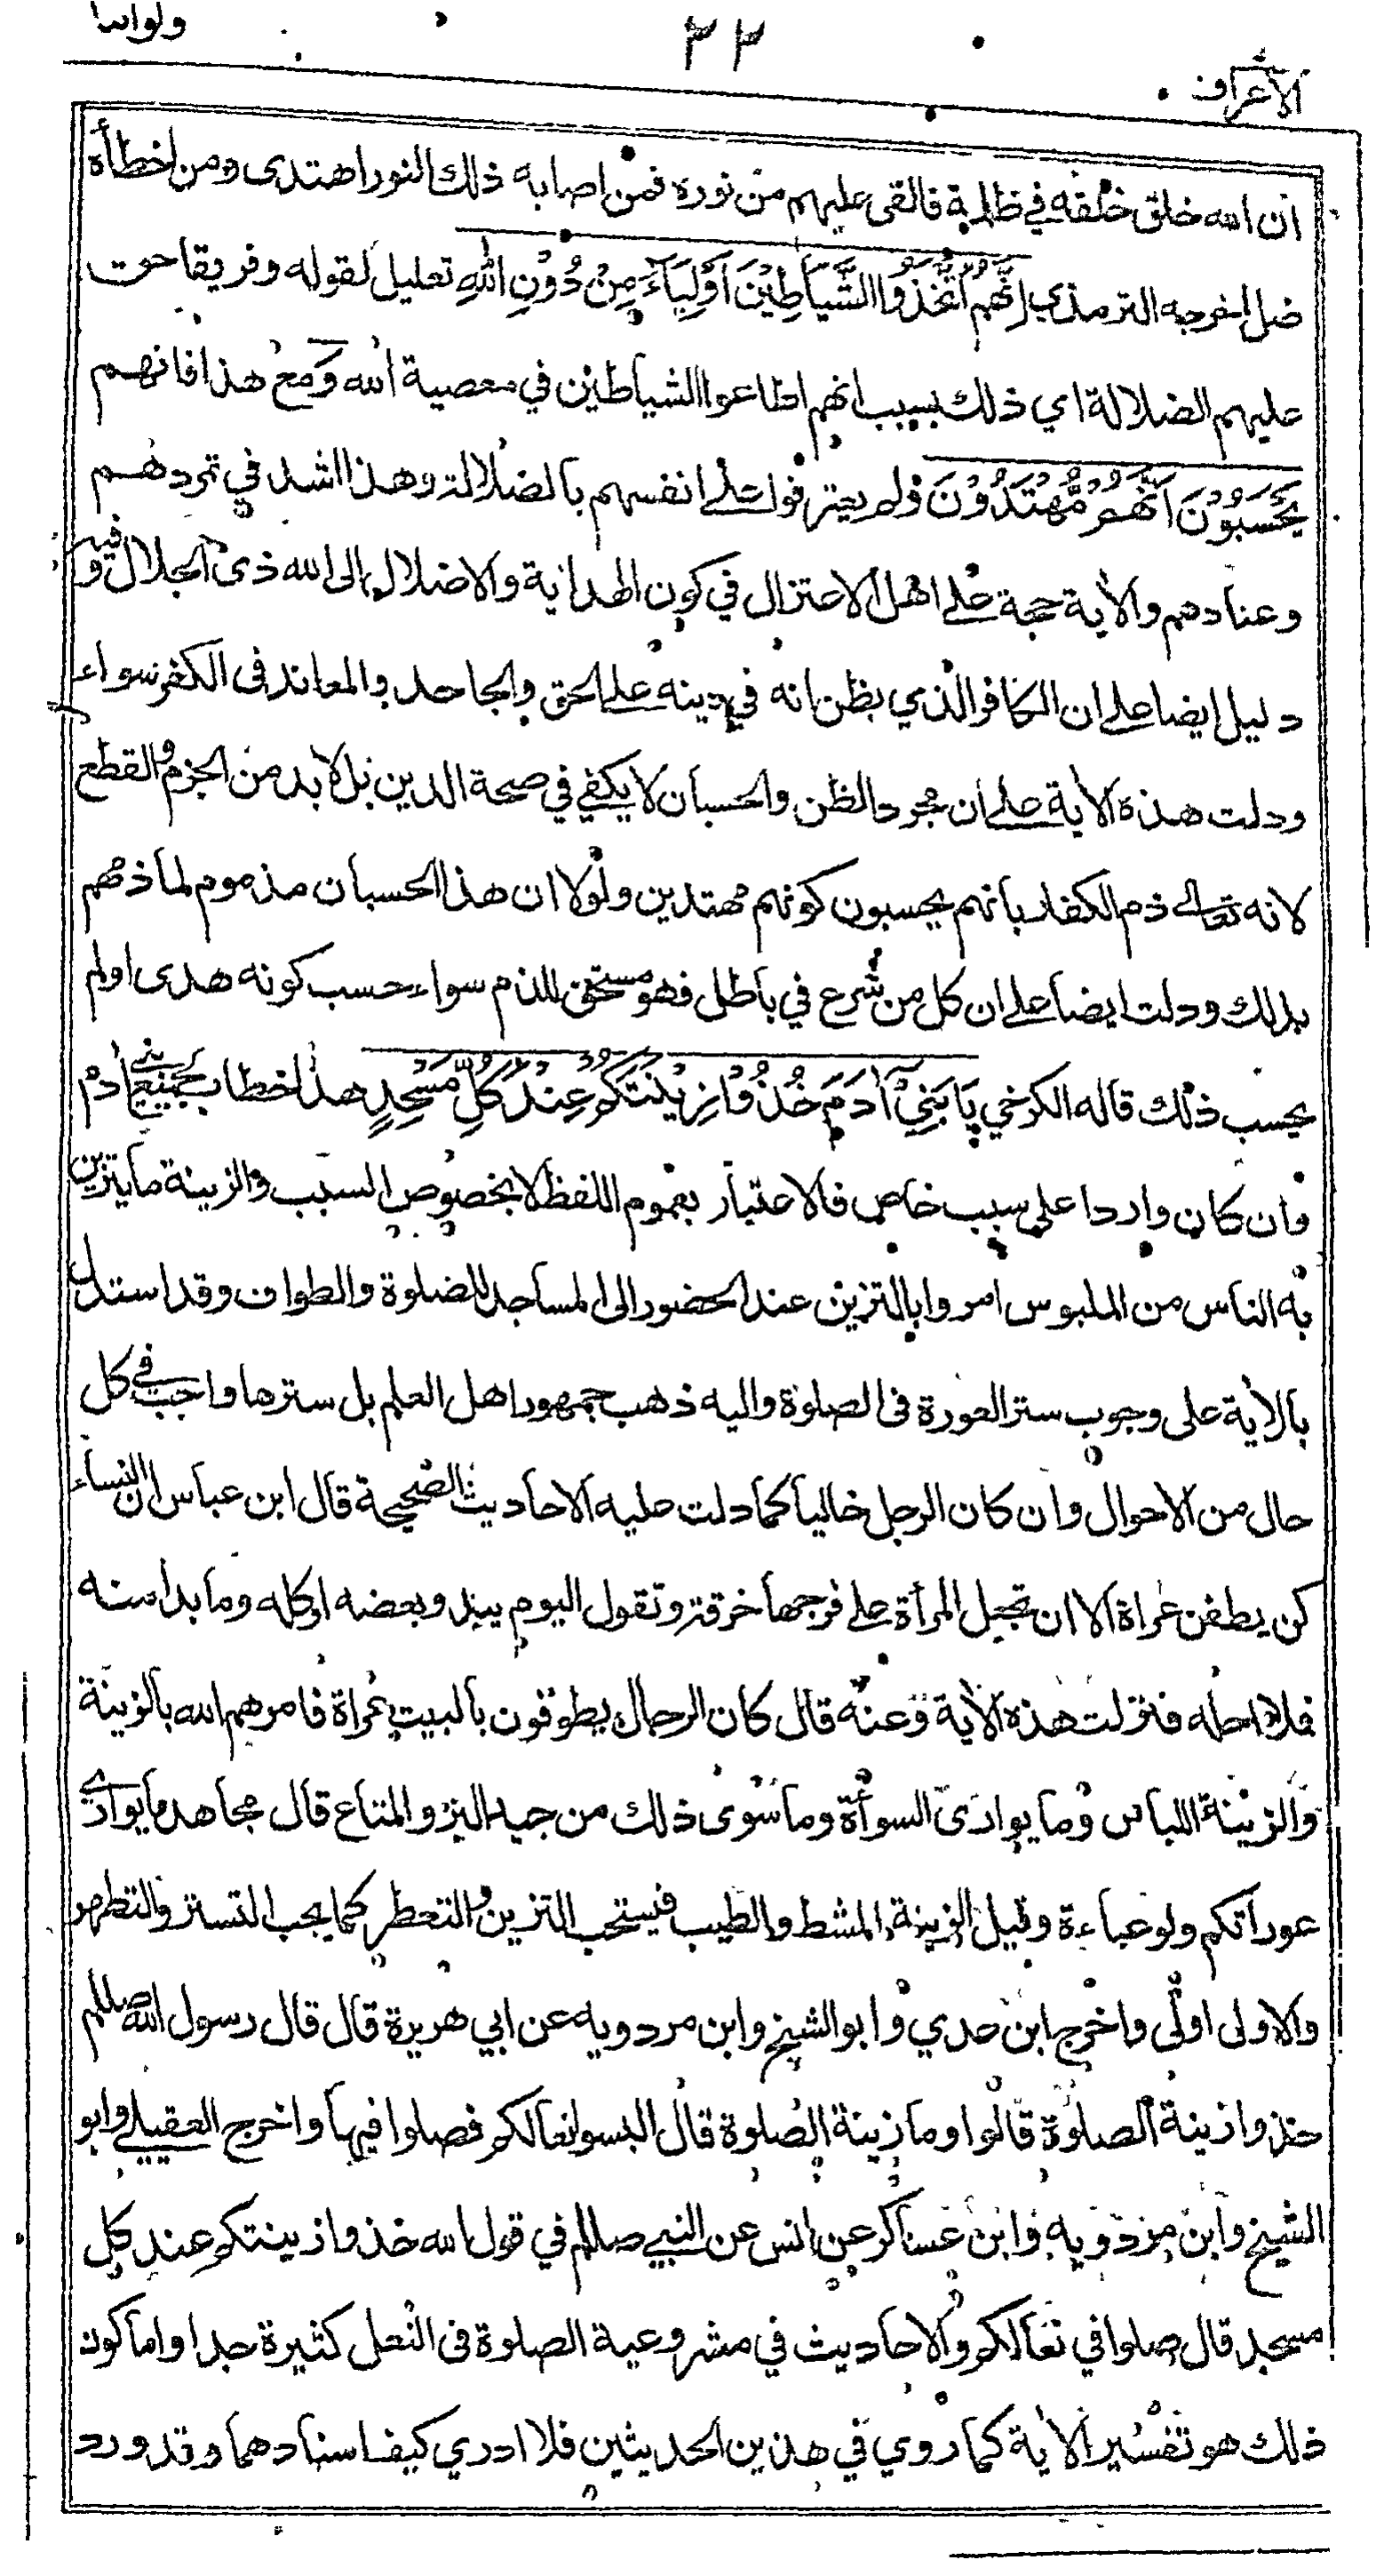 ولواننا
٣٢
الأعراف
ان الله خلق خلقه في ظلمة فالقى عليهم من نوره فمن اصابه ذلك النور اهتدى ومن اخطأه
ضل اخرجه الترمذي إِنَّهُمُ اتَّخَذُوا الشَّيَاطِيْنَ أَوْلِيَآءَ مِنْ دُوْنِ اللهِ تعليل لقوله وفريقا حقت
عليهم الضلالة اي ذلك بسبب انهم اطاعوا الشياطين في معصية الله وَمع هذا فانهم
يَحْسَبُوْنَ أَنَّهُمْ مُّهْتَدُوْنَ ولم يعترفوا على انفسهم بالضلالة وهذا اشد في تمردهم
وعنادهم والأية حجة على اهل الاعتزال في كون الهداية والاضلال الى الله ذى الجلال وفيه
دليل ايضا على ان الكافر الذي يظن انه في دينه على الحق والجاحد والمعاند فى الكفر سواء
ودلت هذه الأية على ان مجرد الظن والحسبان لا يكفي في صحة الدين بل لا بد من الجزم والقطع
لانه تعالى ذم الكفار بانهم يحسبون كونهم مهتدين ولولا ان هذا الحسبان مذموم لما ذمهم
بذلك ودلت ايضا على ان كل من شرع في باطل فهو مستحق للذم سواء حسب كونه هدى اولم
يحسب ذلك قاله الكرخي يَا بَنِيْ آدَمَ خُذُوْا زِيْنَتَكُمْ عِنْدَ كُلِّ مَسْجِدٍ هذا خطاب لجميع بني أدم
وان كان واردا على سبب خاص فالاعتبار بعموم اللفظ لا بخصوص السبب والزينة ما يتزين
به الناس من الملبوس امروا بالتزين عند الحضور الى المساجد للصلوة والطواف وقد استدل
بالأية على وجوب ستر العورة فى الصلوة واليه ذهب جمهور اهل العلم بل سترها واجب في كل
حال من الاحوال وان كان الرجل خاليا كما دلت عليه الاحاديث الصحيحة قال ابن عباس ان النساء
كن يطفن عراة الا ان تجعل المرأة على فرجها خرقة وتقول اليوم يبدو بعضه او كله وما بدا منه
فلا احله فنزلت هذه الأية وعنه قال كان الرجال يطوفون بالبيت عراة فامرهم الله بالزينة
والزينة اللباس وما يوارى السوأة وما سوى ذلك من جيد البز والمتاع قال مجاهد ما يوارى
عوراتكم ولو عباءة وقيل الزينة المشط والطيب فيستحب التزين والتعطر كما يجب التستر والتطهر
والاولى اولى واخرج ابن عدي وابو الشيخ وابن مردويه عن ابي هريرة قال قال رسول الله صللم
خذوا زينة الصلوة قالوا وما زينة الصلوة قال البسوا نعالكم فصلوا فيها واخرج العقيلي وابو
الشيخ وابن مردويه وابن عساكر عن انس عن النبي صللم في قول الله خذوا زينتكم عند كل
مسجد قال صلوا في نعالكم والاحاديث في مشروعية الصلوة فى النعل كثيرة جدا واما كون
ذلك هو تفسير الأية كما روي في هذين الحديثين فلا ادري كيف اسنادهما وقد ورد